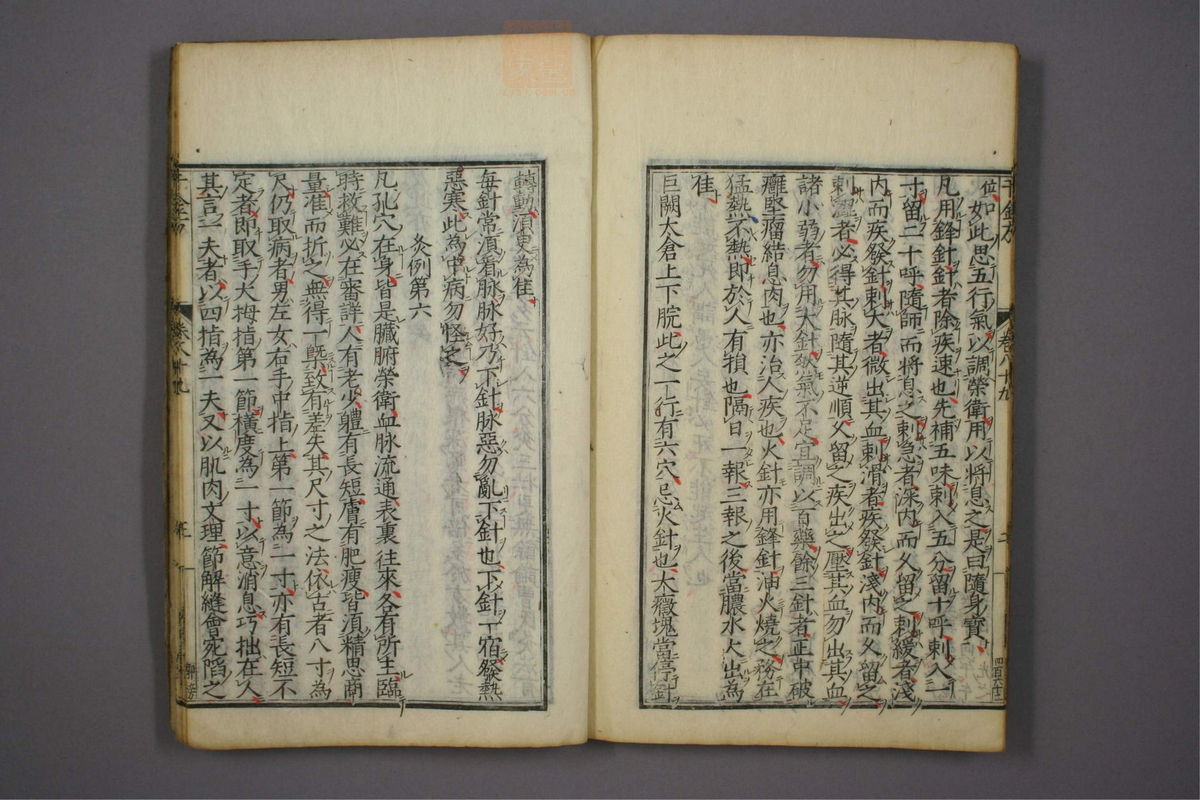 位如此思五行氣以調榮衛用以將息之是曰隨身寳
凡用鋒針針者除疾速也先補五味刺入五分留十呼刺入一
寸留二十呼隨師而將息之刺急者深内而久留之刺緩者淺
内而疾發針刺大者微出其血刺滑者疾發針淺内而久留之
刺澀者必得其脉隨其逆順久留之疾出之壓其血勿出其血
諸小弱者勿用大針然氣不足宜調以百藥餘三針者正中破
癰堅瘤結息肉也亦治人疾也火針亦用鋒針油火燒之務在
猛熱不熱即於人有損也隔日一報三報之後當膿水大出為
佳
巨闕大倉上下脘此之一行有六穴忌火針也大癥塊當停針
轉動須臾為佳
每針常須看脉脉好乃下針脉惡勿亂下針也下針一宿發熱
惡寒此為中病勿怪之
灸例第六
凡孔穴在身皆是臟腑榮衛血脉流通表裏往來各有所主臨
時救難必在審詳人有老少體有長短膚有肥瘦皆須精思商
量准而折之無得一槩致有差失其尺寸之法依古者八寸為
尺仍取病者男左女右手中指上第一節為一寸亦有長短不
定者即取手大拇指第一節橫度為一寸以意消息巧拙在人
其言一夫者以四指為一夫又以肌肉文理節解縫會宛䧟之